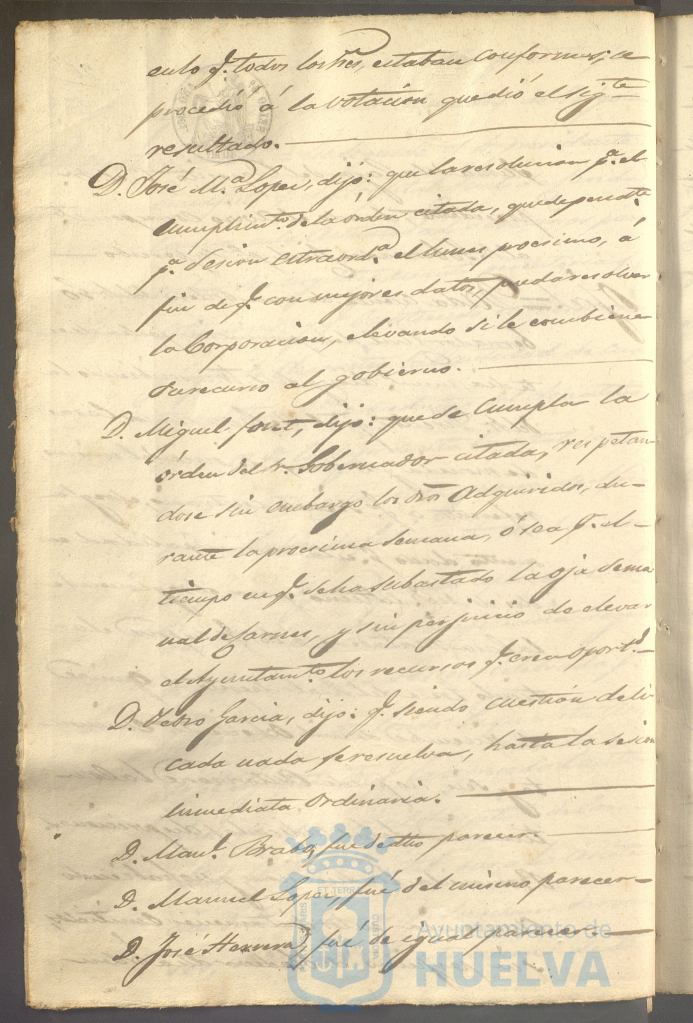 en lo q.e todos los Sres, estaban conformes, se
procedió á la votación que dió el sigte
resultado.
D. José M.a Lopez, dijo: que la resolucion p.a el
cumplimto. de la órden citada, quede pendte.
p.a sesion estraord.a el lunes procsimo, á
fin de q.e con mejores datos, pueda resolver
la Corporacion, elevando si le combiene
recurso al gobierno.
D. Miguel font, dijo: que se cumpla la
órden del Sr. Gobernador citada, respetan-
dose sin embargo los dros Adquiridos, du-
rante la procsima semana, ó sea p.r el
tiempo en q.e se ha subastado la oja sema
nal de Carnes, y sin perjuicio de elevar
el Ayuntamto. los recursos q.e crea oport.s
D. Pedro Garcia, dijo: q.e siendo cuestión deli
cada nada se resuelva, hasta la sesion
inmediata Ordinaria.
D. Manl. Brabo, fue de dho parecer.
D. Manuel Lopez, fué del mismo parecer
D. José Herrera, fué de igual parecer.
Ayuntamiento de
HUELVA